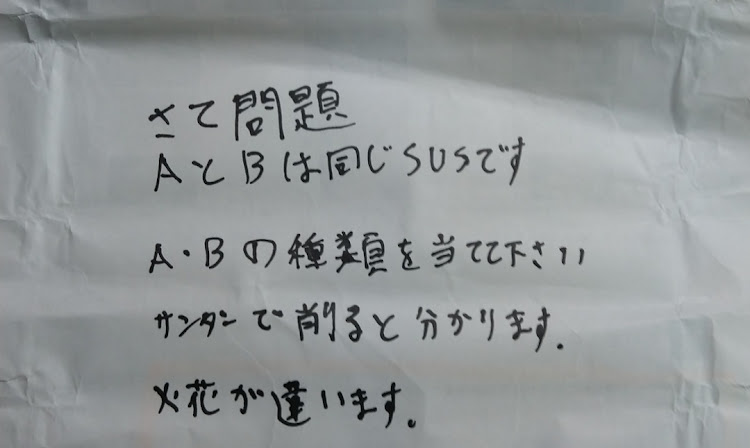 さて問題
AとBは同じSUSです
A・Bの種類を当てて下さい
サンダーで削ると分かります.
火花が違います.